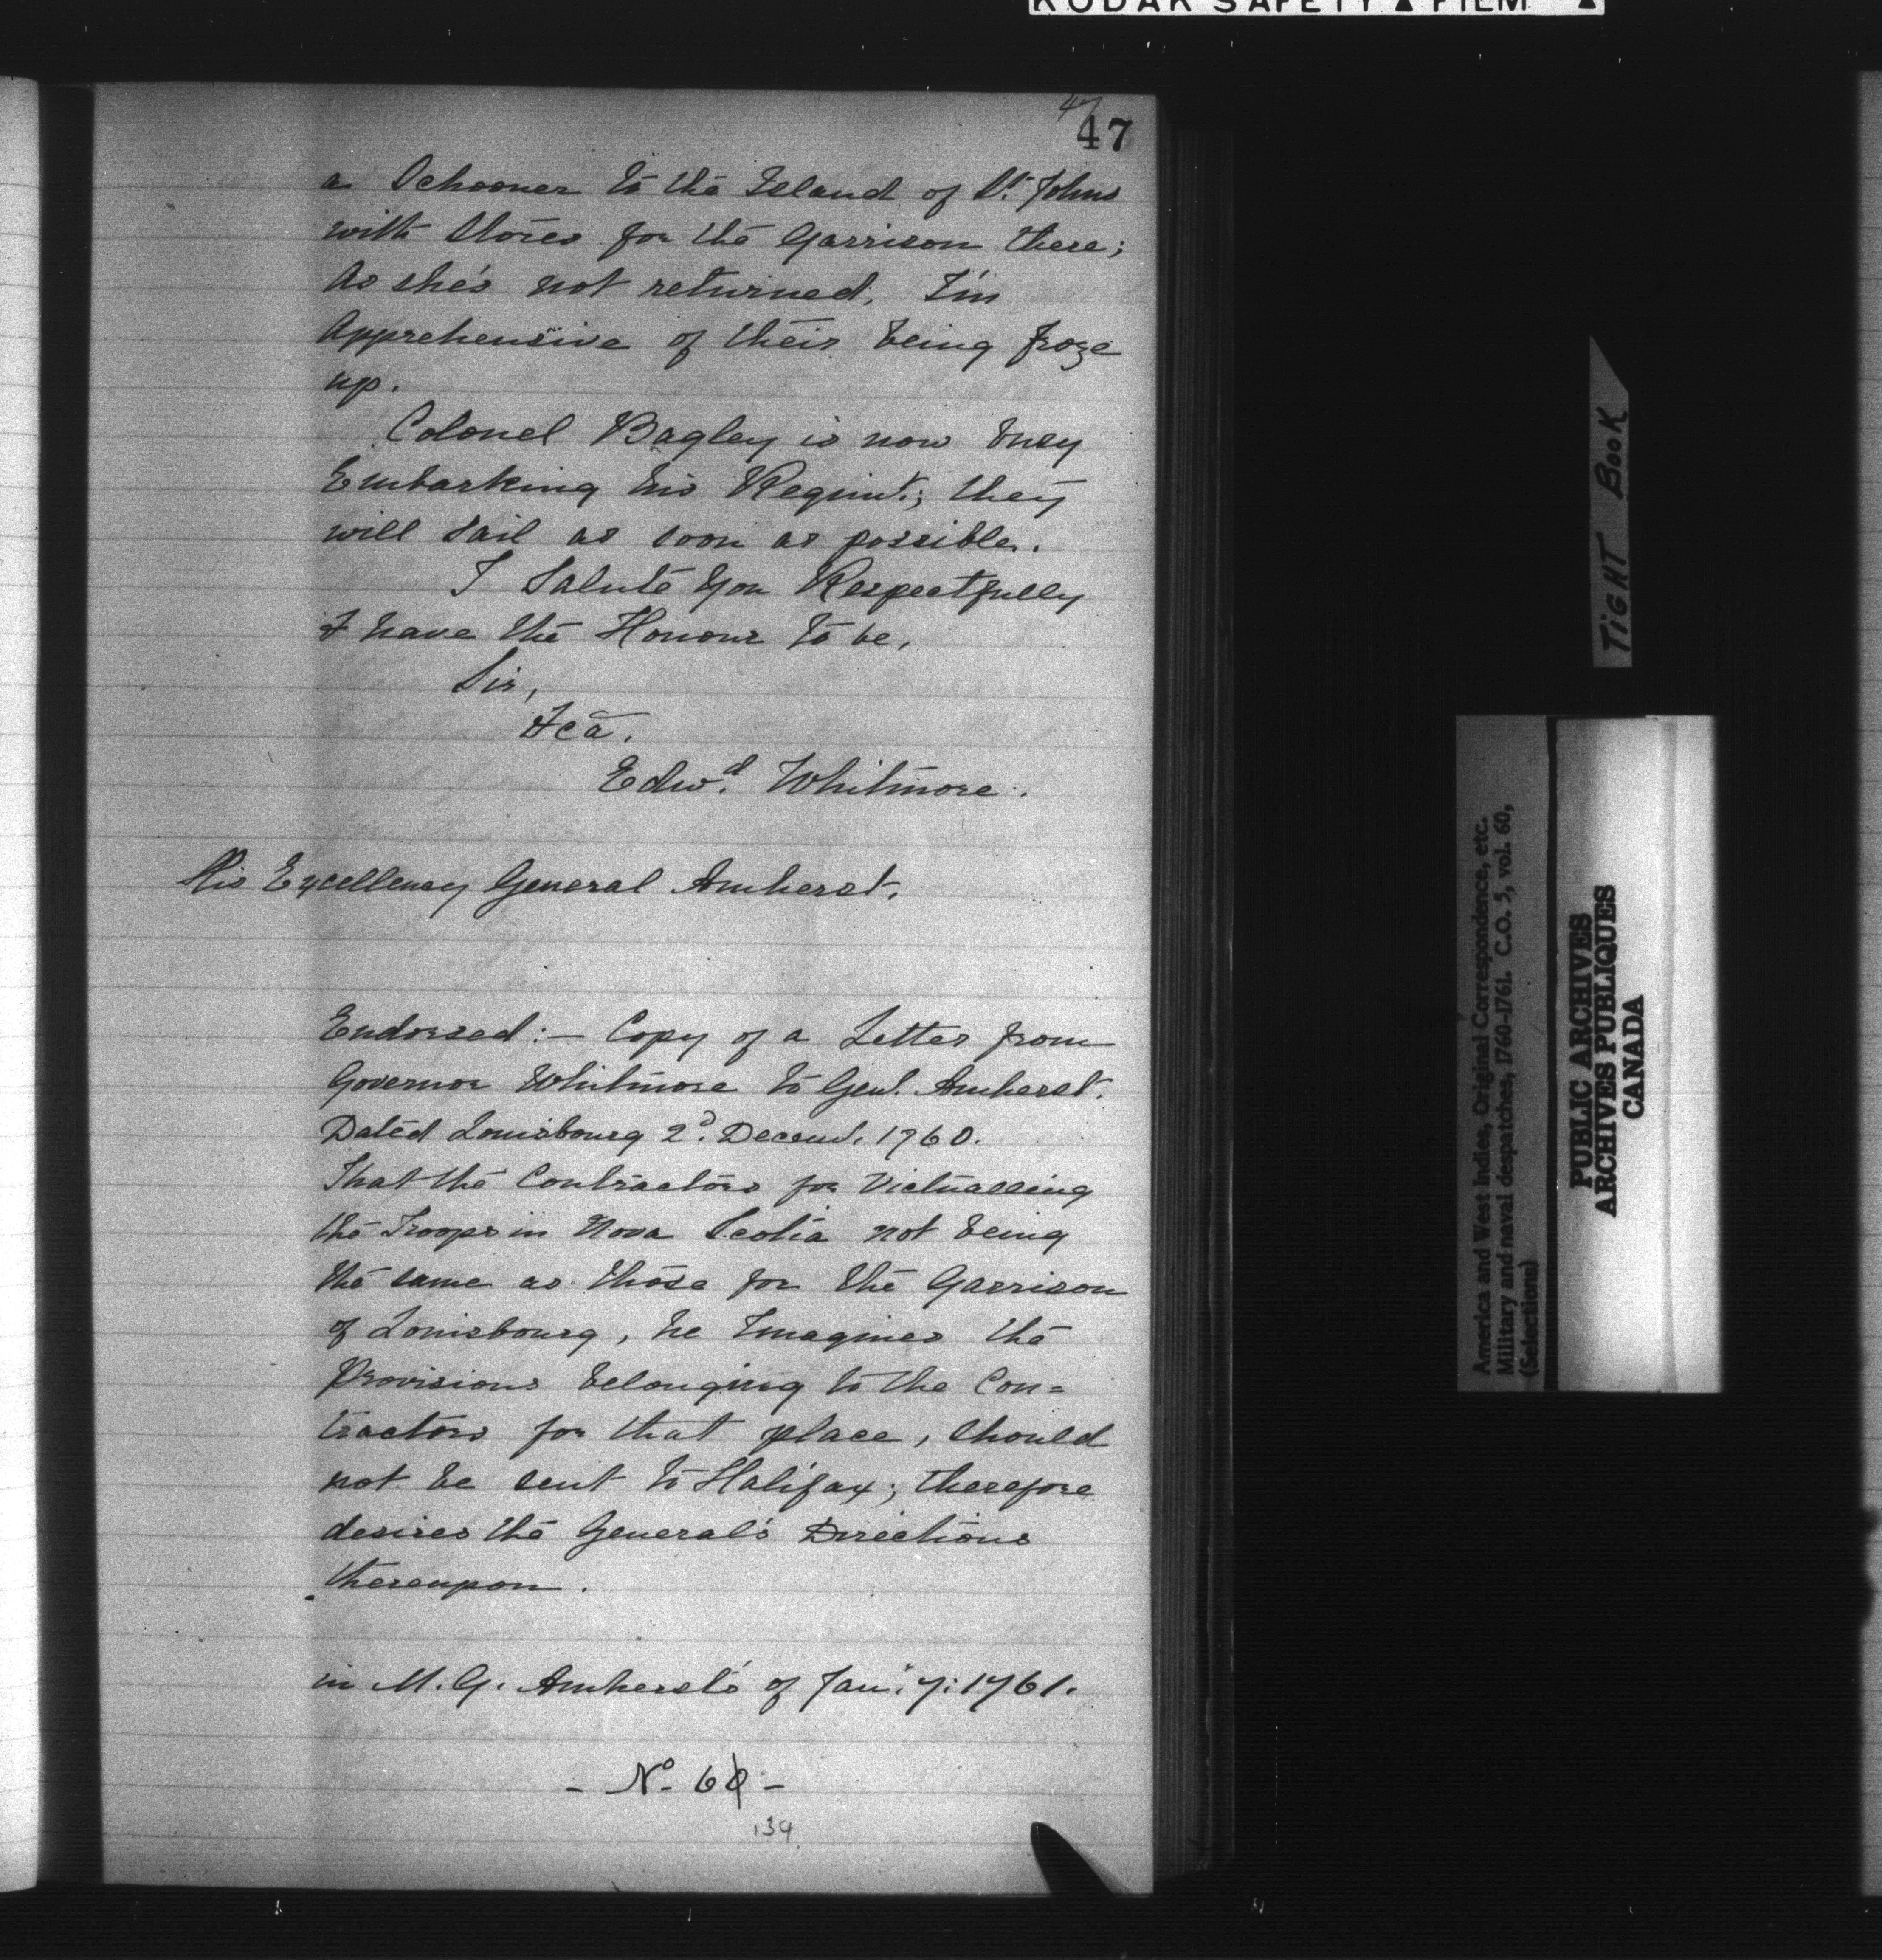 KODAK SAFETY ▲ FILM ▲
47
47
a Schooner to the Island of St. Johns
with Stores for the Garrison there;
As she's not returned, I'm
Apprehensive of their being froze
up.
Colonel Bagley is now busy
Embarking his Regimt.; they
will sail as soon as possible.
I Salute you Respectfully
& have the Honour to be,
Sir,
&ca.
Edwd. Whitmore.
His Excellency General Amherst.
Endorsed:— Copy of a Letter from
Governor Whitmore to Genl. Amherst.
Dated Louisbourg 2d. Decemb. 1760.
That the Contractors for Victualling
the Troops in Nova Scotia not being
the same as those for the Garrison
of Louisbourg, he Imagines the
Provisions belonging to the Con=
tractors for that place, should
not be sent to Halifax; therefore
desires the General's Directions
thereupon.
in M. G. Amherst's of Jany. 7: 1761.
- No. 60 -
139
TIGHT BOOK
America and West Indies, Original Correspondence, etc.
Military and naval despatches, 1760-1761. C.O. 5, vol. 60,
(Selections)
PUBLIC ARCHIVES
ARCHIVES PUBLIQUES
CANADA